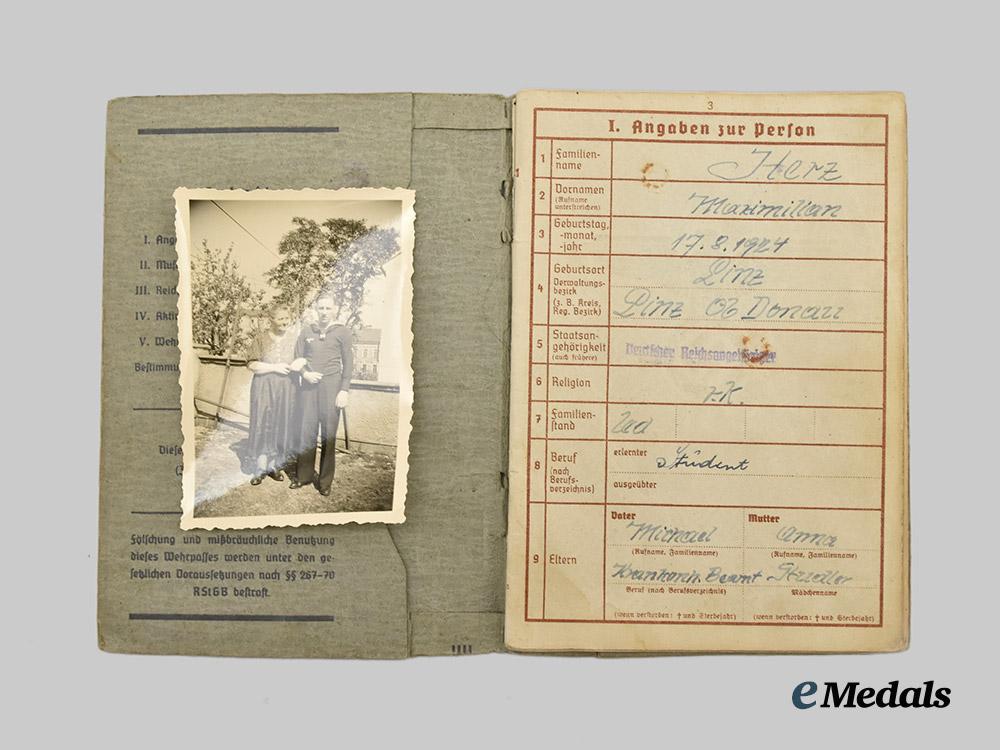 I. Ang
II. Mus
III. Reic
IV. Akti
V. Weh
Bestimmu
Diese
Fälschung und mißbräuchliche Benutzung
dieses Wehrpasses werden unter den ge-
setzlichen Voraussetzungen nach §§ 267–70
RStGB bestraft.
3
I. Angaben zur Person
1 Familien-
name
Herz
2 Vornamen
(Rufname
unterstreichen)
Maximilian
3 Geburtstag,
-monat,
-jahr
17.8.1924
4 Geburtsort
Verwaltungs-
bezirk
(z. B. Kreis,
Reg. Bezirk)
Linz
Linz Ob Donau
5 Staatsan-
gehörigkeit
(auch frühere)
Deutscher Reichsangehöriger
6 Religion
r.K.
7 Familien-
stand
led
8 Beruf
(nach
Berufs-
verzeichnis)
erlernter
Student
ausgeübter
9 Eltern
Vater
Michael
(Rufname, Familienname)
Beamt
Beruf (nach Berufsverzeichnis)
(wenn verstorben: † und Sterbejahr)
Mutter
Anna
(Rufname, Familienname)
Mädchenname
(wenn verstorben: † und Sterbejahr)
eMedals